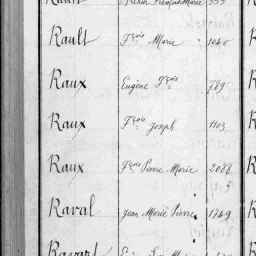 Rault Fçois Marie 1040
Raux Eugène Fçois 789
Raux Fçois Joseph 1103
Raux Fçois Pierre Marie 2088
Raval Jean Marie Pierre 1749